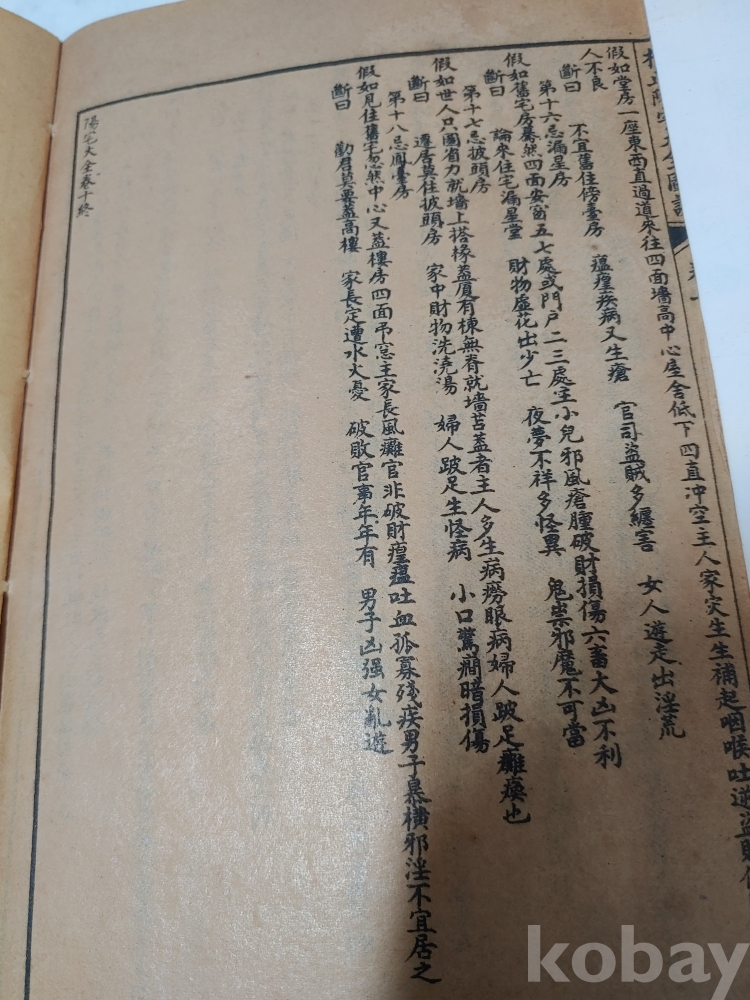 假如堂房一座東西直過道來往四面墻高中心座舍低下四直冲空主人家灾生生補起咽喉吐逆盜財
人不良
斷曰 不宜舊住傍臺房 瘟瘟疾病又生瘡 官司盜賊多纏害 女人遊走出淫荒
第十六忌漏星房
假如舊宅房驀然四面安窗五七處或門户二三處主小兒邪風瘡腫破財損傷六畜大凶不利
斷曰 論來住宅漏星堂 財物虛花出少亡 夜夢不祥多怪異 鬼祟邪魔不可當
第十七忌披頭房
假如世人只圖省力就墻上搭椽盖厦有棟無脊就墻苫盖者主人多生病癆眼病婦人跛足癱瘓也
斷曰 遷居莫住披頭房 家中財物洗澆湯 婦人跛足生怪病 小口驚癎暗損傷
第十八忌鳳臺房
假如見住舊宅忽然中心又盖樓房四面吊窓主家長風癱官非破財瘟瘟吐血孤寡殘疾男子暴橫邪淫不宜居之
斷曰 勸君莫要盖高樓 家長定遭水火憂 破敗官事年年有 男子凶强女亂遊
陽宅大全卷十終
kobay